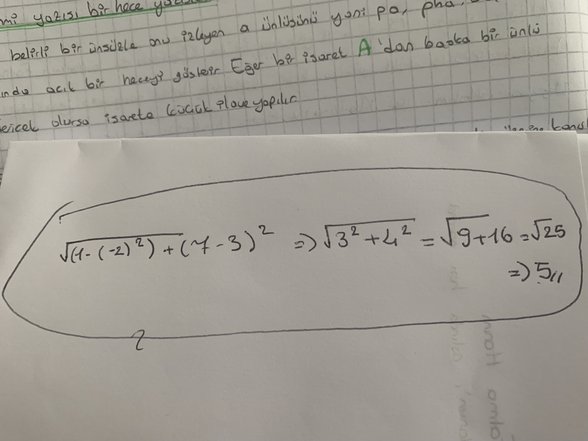 yazısı bir hece
belirli bir ünsüzle onu izleyen a ünlüsünü yani pa, pha,
açık bir heceyi gösterir Eğer bir işaret A'dan başka bir ünlü
olursa işarete küçük ilave yapılır
√(1-(-2)²)+(7-3)² => √3²+4² = √9+16 = √25
=> 5,,
2